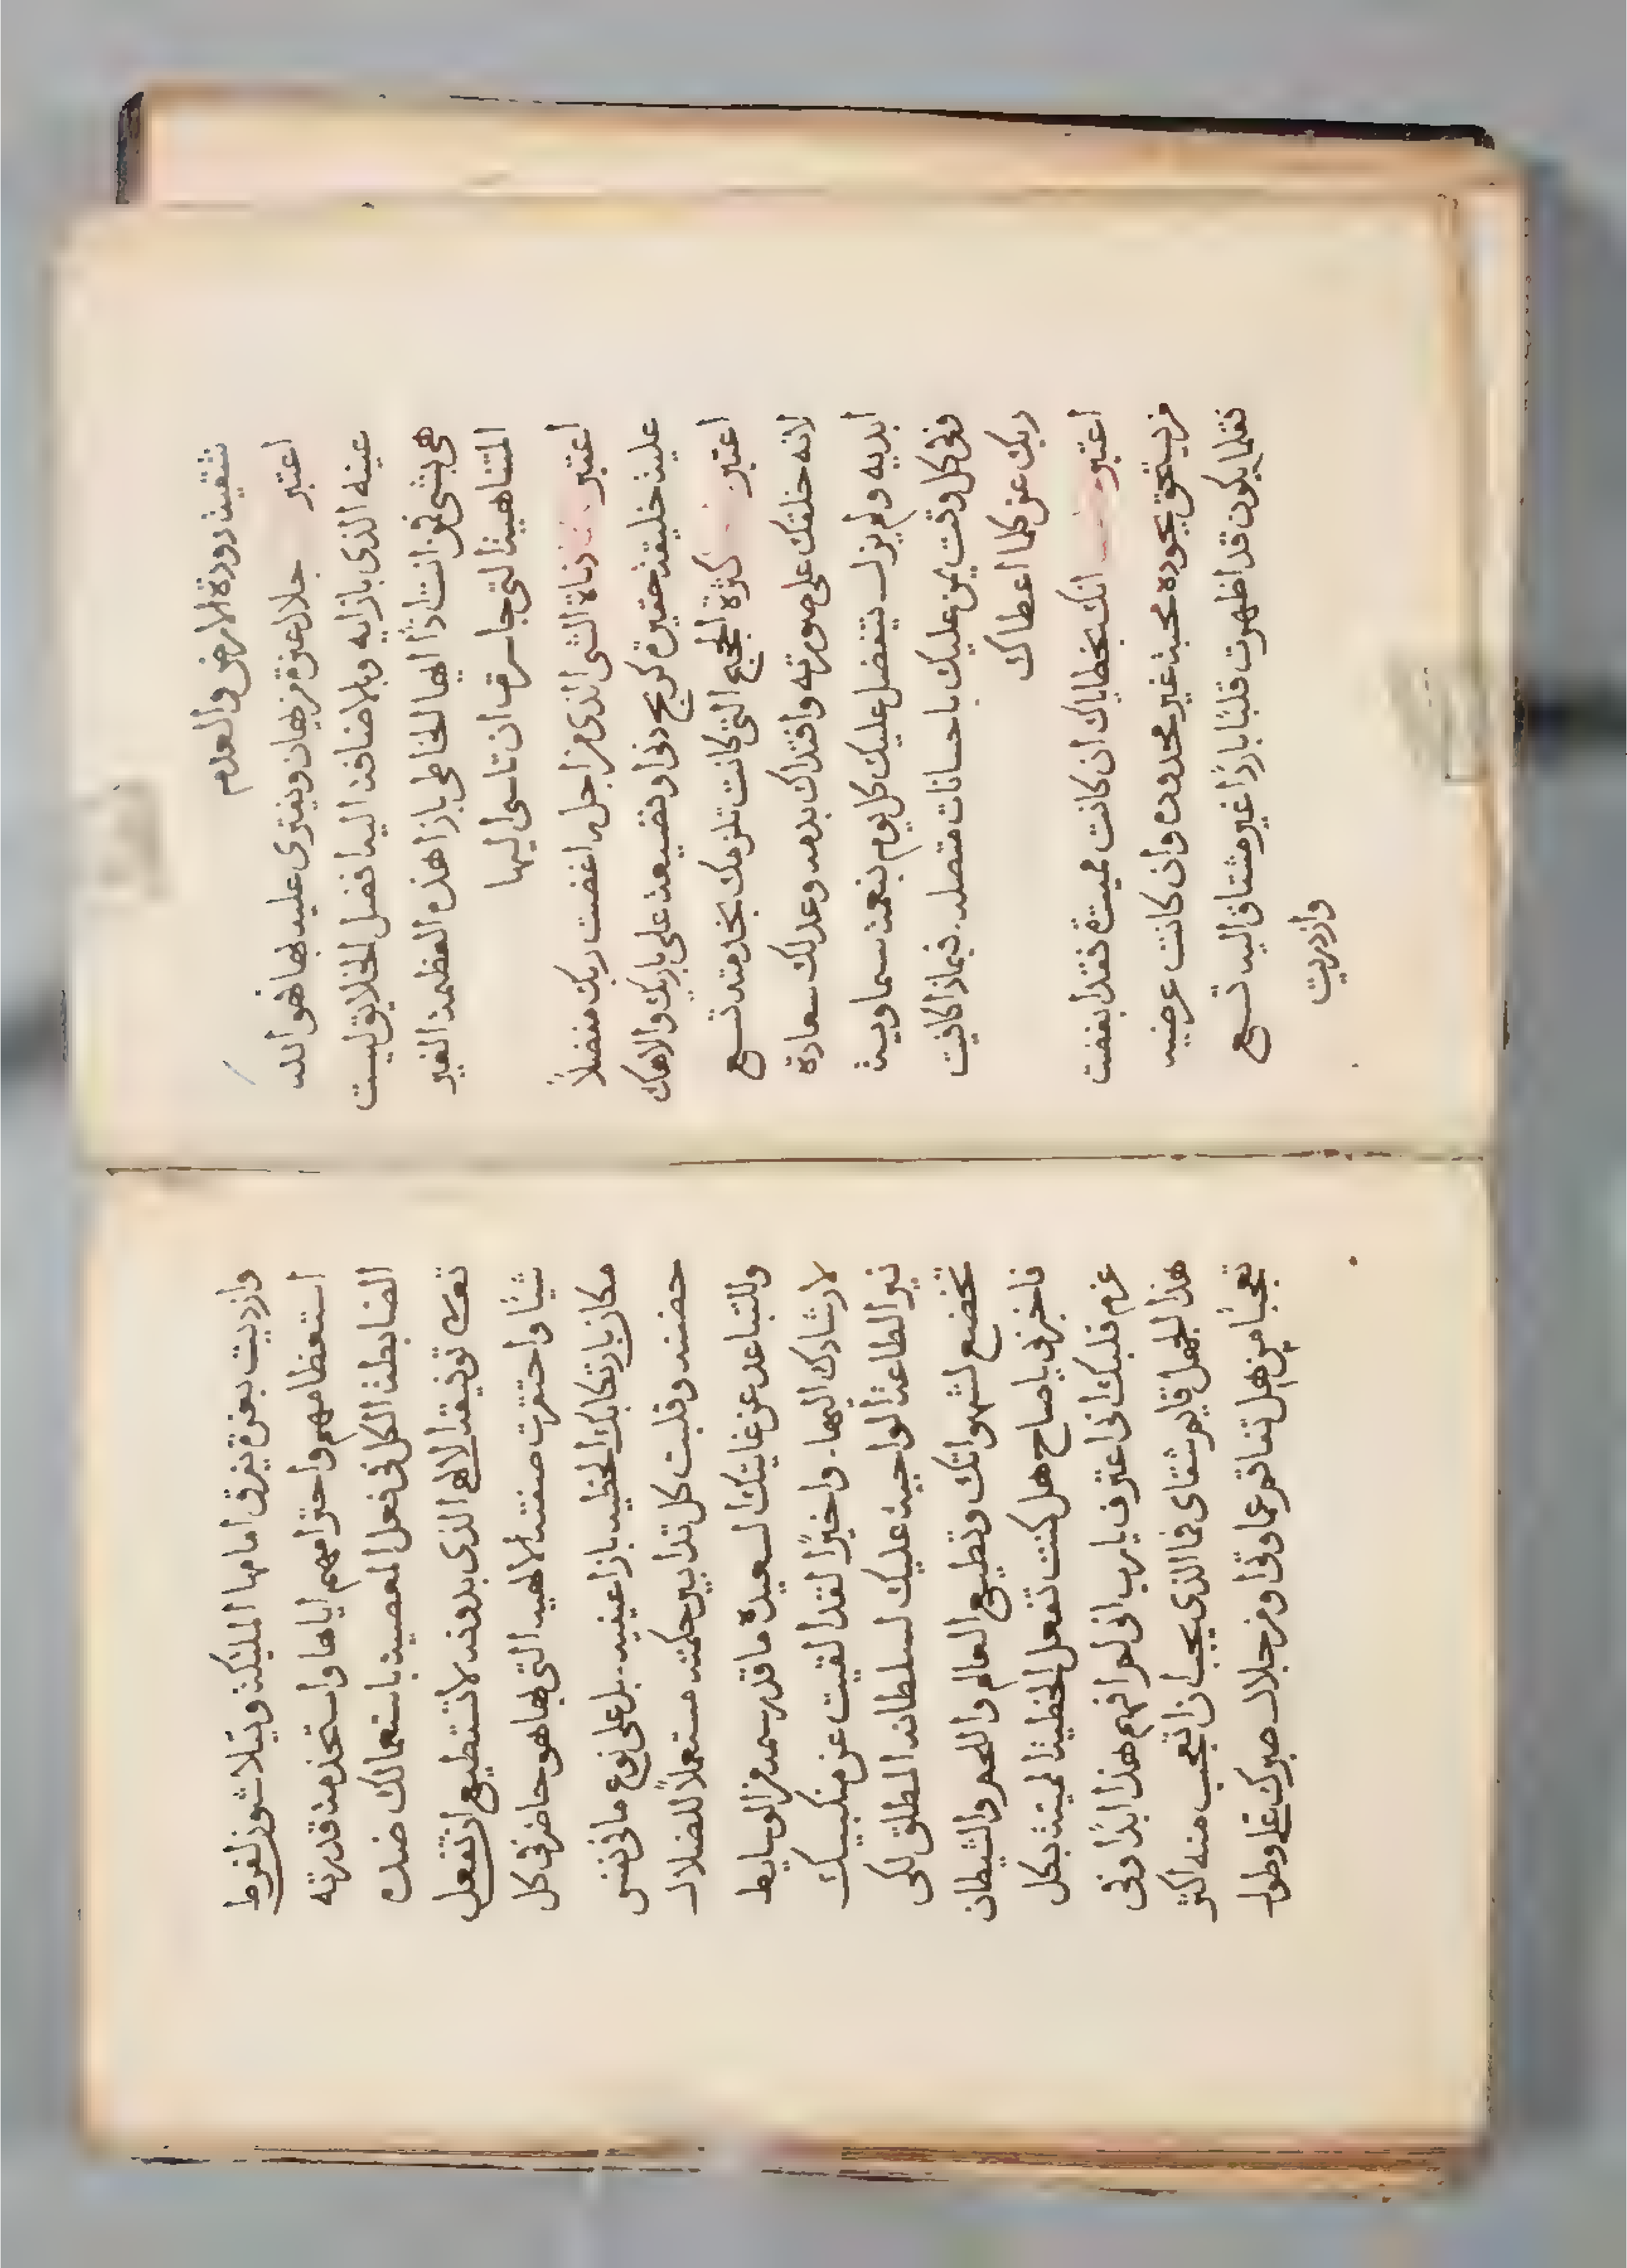 شقيقة دودة الارض والعدم
اعتبر جلال عزة من يهان ويفترى عليه بها فهو الله
عينه الذي بازايه وبالاضافة اليه افضل الخلايق ليست
هي بشي فمن انت اذًا ايها الخاطي بازا هذه العظمة الغير
المتناهية التي تجاسرت ان تاسي اليها
اعتبر دناة الشي الذي من اجله اغضت ربك مفضلاً
عليه خليقة حقيرة كربح دني او نضيعة على باريك والاهك
اعتبر كثرة الحجج التي كانت تلزمك بخدمته تسع
لانه خلقك على صورته وافتداك بدمه وعد لك سعادة
ابديه ولم يزل يتفضل عليك كل يوم بنعمة سماوية
ففي كل وقت يمن عليك باحسانات متصلة. فبماذا كافيت
ربك عن كلما اعطاك
اعتبر انك بخطاياك ان كانت مميتة فقد ابغضت
من يستحق بجوده محبة غير محدوده وان كانت عرضيه
فقلما يكون قد اظهرت قلبًا باردًا غير مشتاق اليه تسع
وازدريت
وازدريت بعزة يغرق امامها المليكة ويتلاشون لفرط
استعظامهم واحترامهم اياها واستخدمت قدرته
الضابطة الكل في فعل المعصية باستعمالك ضده
تعالى توفيقه الالهي الذي بدونه لا تستطيع ان تفعل
شيًا واحتقرت صفته الالهيه التي بها هو حاضر في كل
مكان بارتكابك الخطيه بازا عينيه. بل على نوع ما في نفس
حضنه وقلبت كل تدابير حكمته مستعملاً للضلال
وللتباعد عن غايتك السعيدة ما قد رسمه من الوسايط
لارشادك اليها. واخيرًا لقد القيت عن منكبيك
نير الطاعة الواجبة عليك لسلطانه المطلق لكي
تخضع لشهواتك وتطيع العالم واللحم والشيطان
فاخبرني يا صاح هل كنت تفعل الخطية المميتة بكل
عزم قلبك اني اعترف يا رب اني لم افهم هذا ابدًا وفي
هذا الجهل قايم شقاي فما الذي يجب ان اتعجب منه اكثر
تعجبًا من هل تفاقم عماوتي او من جلال صبرك علي وطول